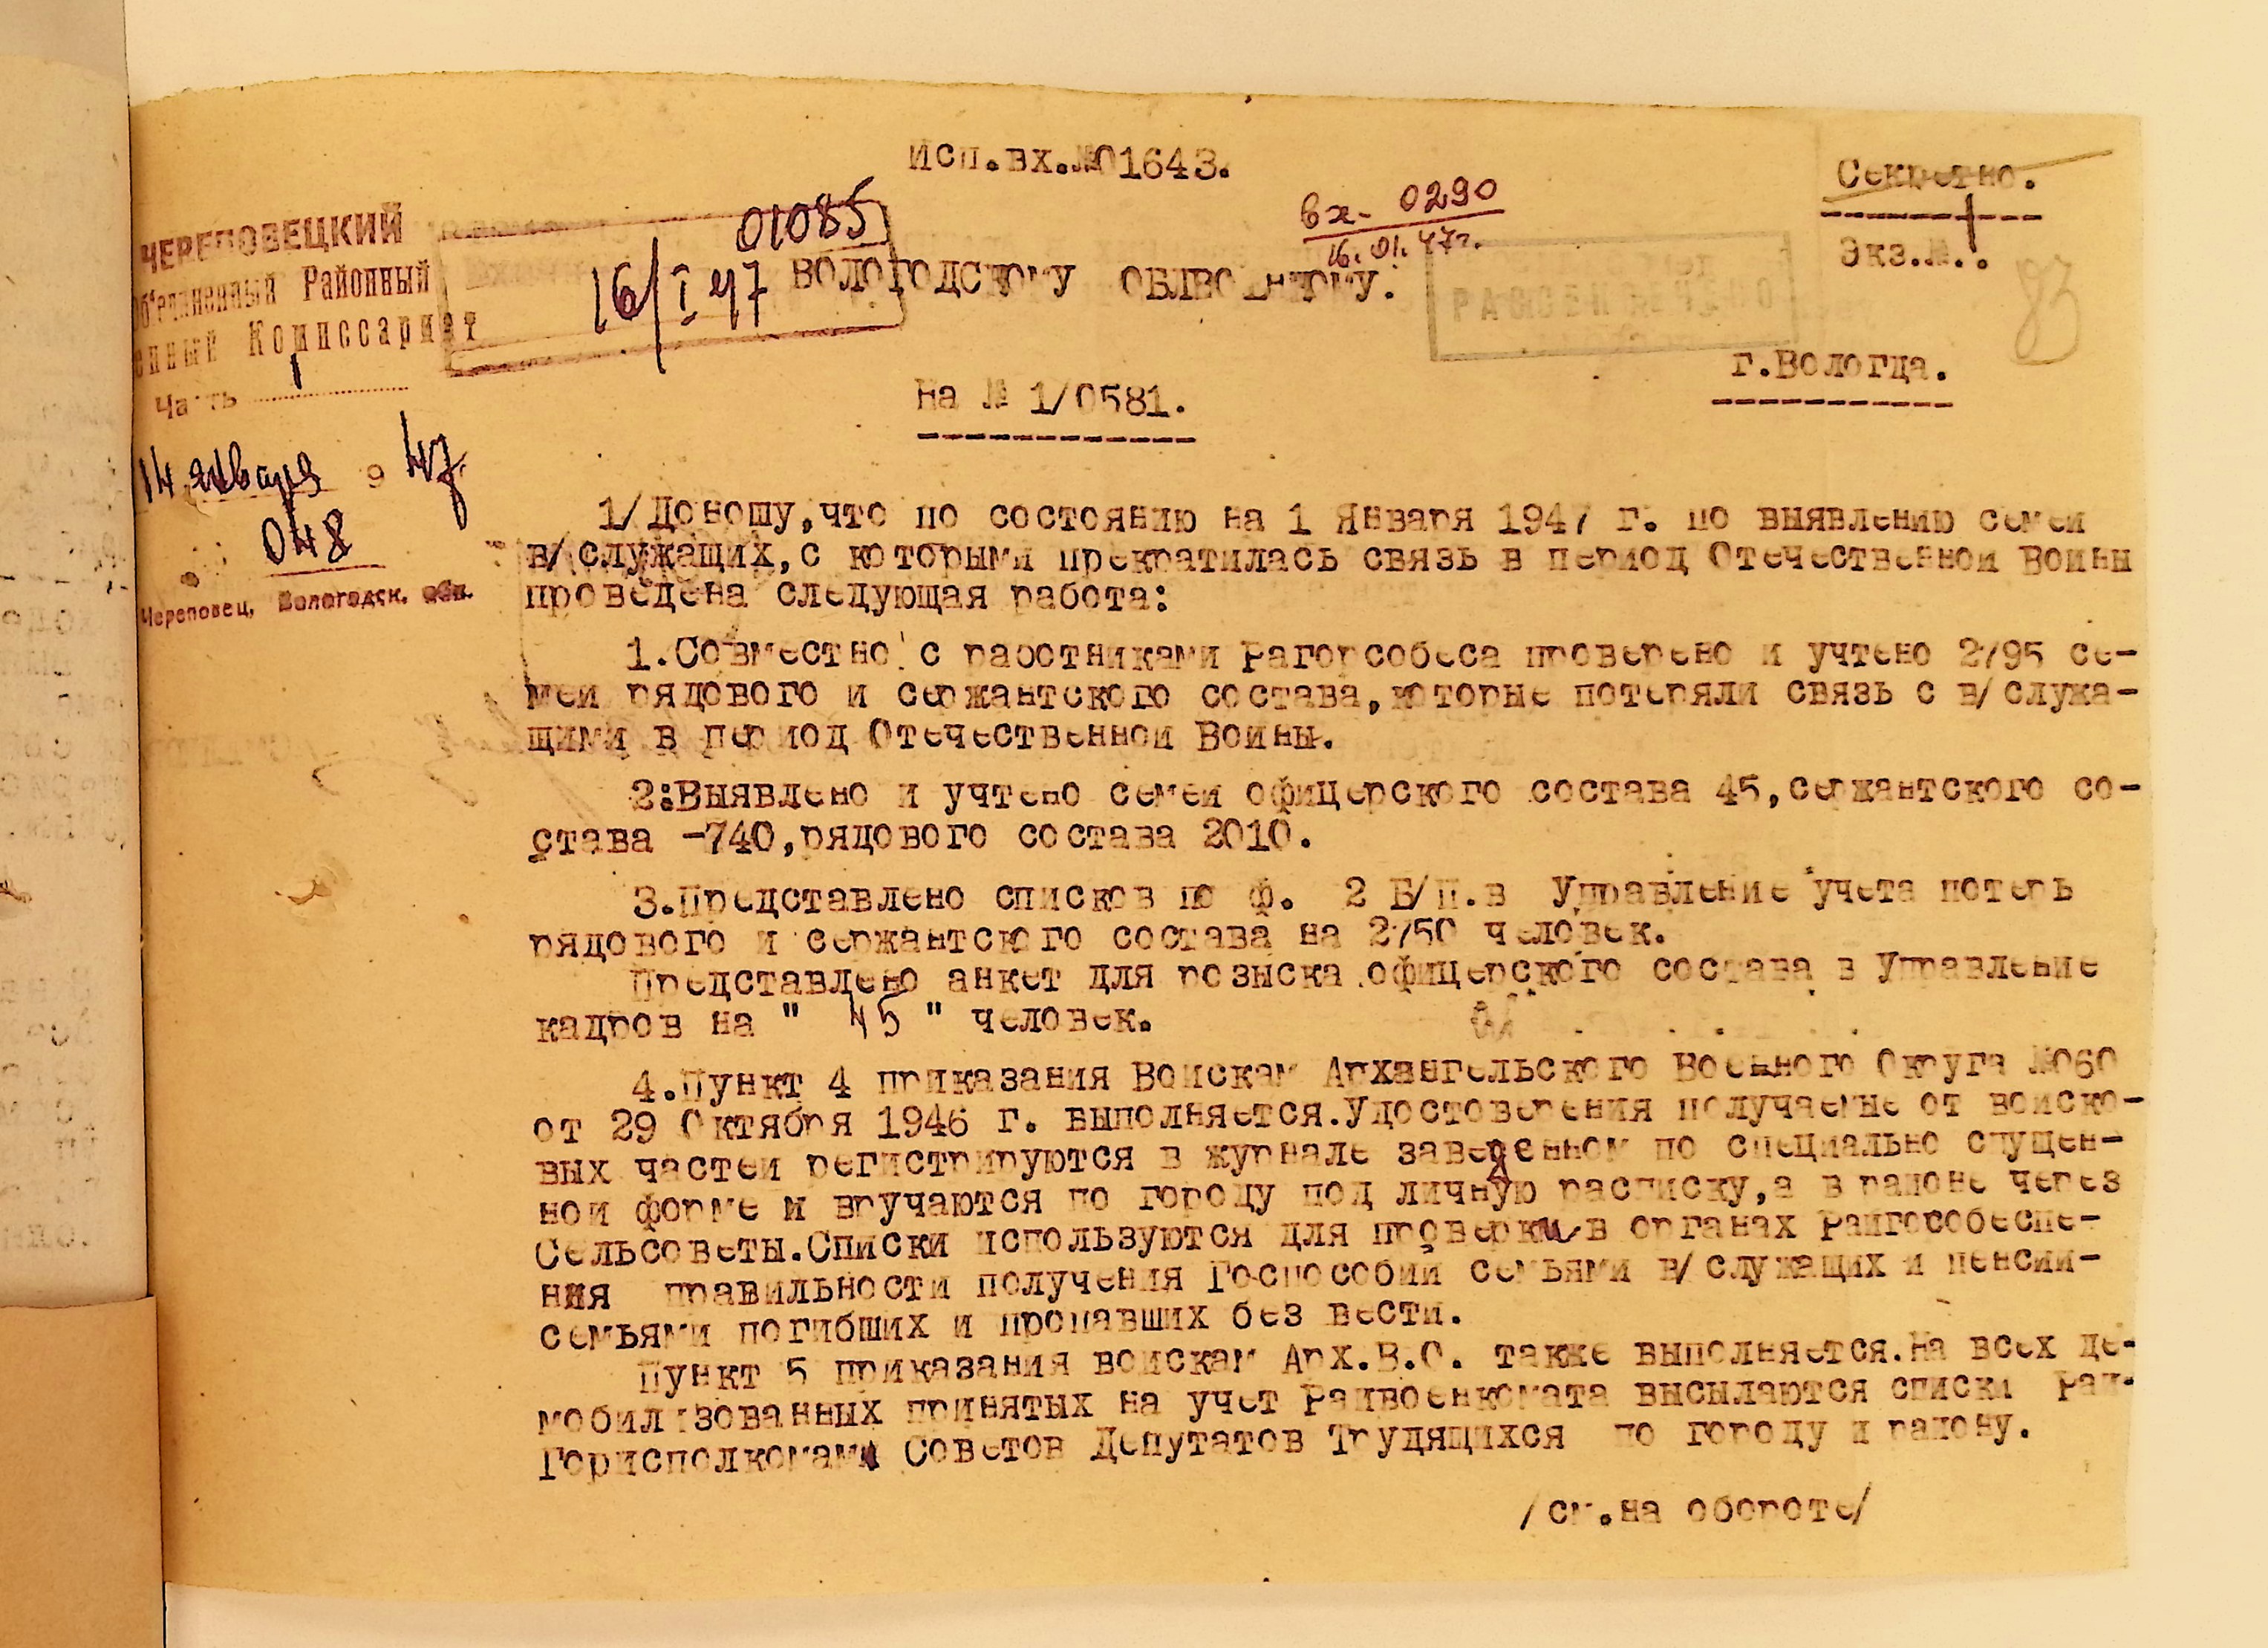 исп.вх.№01643.
Секретно.
Экз.№ 1.
83
вх- 0290
16.01.47г.
01085
16/I 47
ЧЕРЕПОВЕЦКИЙ
Об'единенный Районный
енный Комиссариат
Часть 1
14 января 9 47
048
Череповец, Вологодск. обл.
ВОЛОГОДСКОМУ ОБЛВОЕНКОМУ.
РАССЕКРЕЧЕНО
г.Вологда.
На № 1/0581.
1/Доношу,что по состоянию на 1 Января 1947 г. по выявлению семей
в/служащих,с которыми прекратилась связь в период Отечественной Войны
проведена следующая работа:
1.Совместно с работниками Рагорсобеса проверено и учтено 2795 се-
мей рядового и сержантского состава,которые потеряли связь с в/служа-
щими в период Отечественной Войны.
2:Выявлено и учтено семей офицерского состава 45,сержантского со-
става -740,рядового состава 2010.
3.Представлено списков по ф. 2 Б/П.в Управление учета потерь
рядового и сержантского состава на 2750 человек.
Представлено анкет для розыска офицерского состава в Управление
кадров на " 45 " человек.
4.Пункт 4 приказания Войскам Архангельского Военного Округа №060
от 29 Октября 1946 г. выполняется.Удостоверения получаемые от войско-
вых частей регистрируются в журнале заверенном по специально спущен-
ной форме и вручаются по городу под личную расписку,а в районе через
Сельсоветы.Списки используются для проверки в органах Райгорсобеспе-
ния правильности получения Госпособий семьями в/служащих и пенсий-
семьями погибших и пропавших без вести.
Пункт 5 приказания войскам Арх.В.О. также выполняется.На всех де-
мобилизованных принятых на учет Райвоенкомата высылаются списки Рай-
Горисполкомами Советов Депутатов Трудящихся по городу и району.
/см.на обороте/